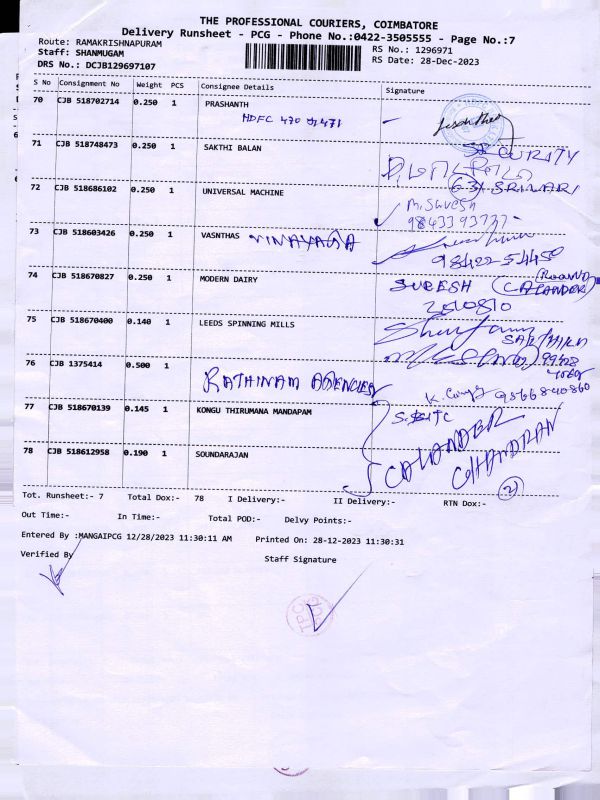 THE PROFESSIONAL COURIERS, COIMBATORE
Delivery Runsheet - PCG - Phone No.:0422-3505555 - Page No.:7
Route: RAMAKRISHNAPURAM
Staff: SHANMUGAM
DRS No.: DCJB129697107
RS No.: 1296971
RS Date: 28-Dec-2023
S No Consignment No Weight PCS Consignee Details Signature
70 CJB 518702714 0.250 1 PRASHANTH
HDFC 470
71 CJB 518748473 0.250 1 SAKTHI BALAN
SECURITY
72 CJB 518686102 0.250 1 UNIVERSAL MACHINE
M. Suresh
9843393737
73 CJB 518603426 0.250 1 VASNTHAS VINAYAGA
98422-54450
74 CJB 518670827 0.250 1 MODERN DAIRY
SURESH
75 CJB 518670400 0.140 1 LEEDS SPINNING MILLS
76 CJB 1375414 0.500 1
RATHINAM AGENCIES
9566840860
77 CJB 518670139 0.145 1 KONGU THIRUMANA MANDAPAM
CALANDER
78 CJB 518612958 0.190 1 SOUNDARAJAN
CHANDRAN
2
Tot. Runsheet:- 7 Total Dox:- 78 I Delivery:- II Delivery:- RTN Dox:-
Out Time:- In Time:- Total POD:- Delvy Points:-
Entered By :MANGAIPCG 12/28/2023 11:30:11 AM Printed On: 28-12-2023 11:30:31
Verified By Staff Signature
TPC